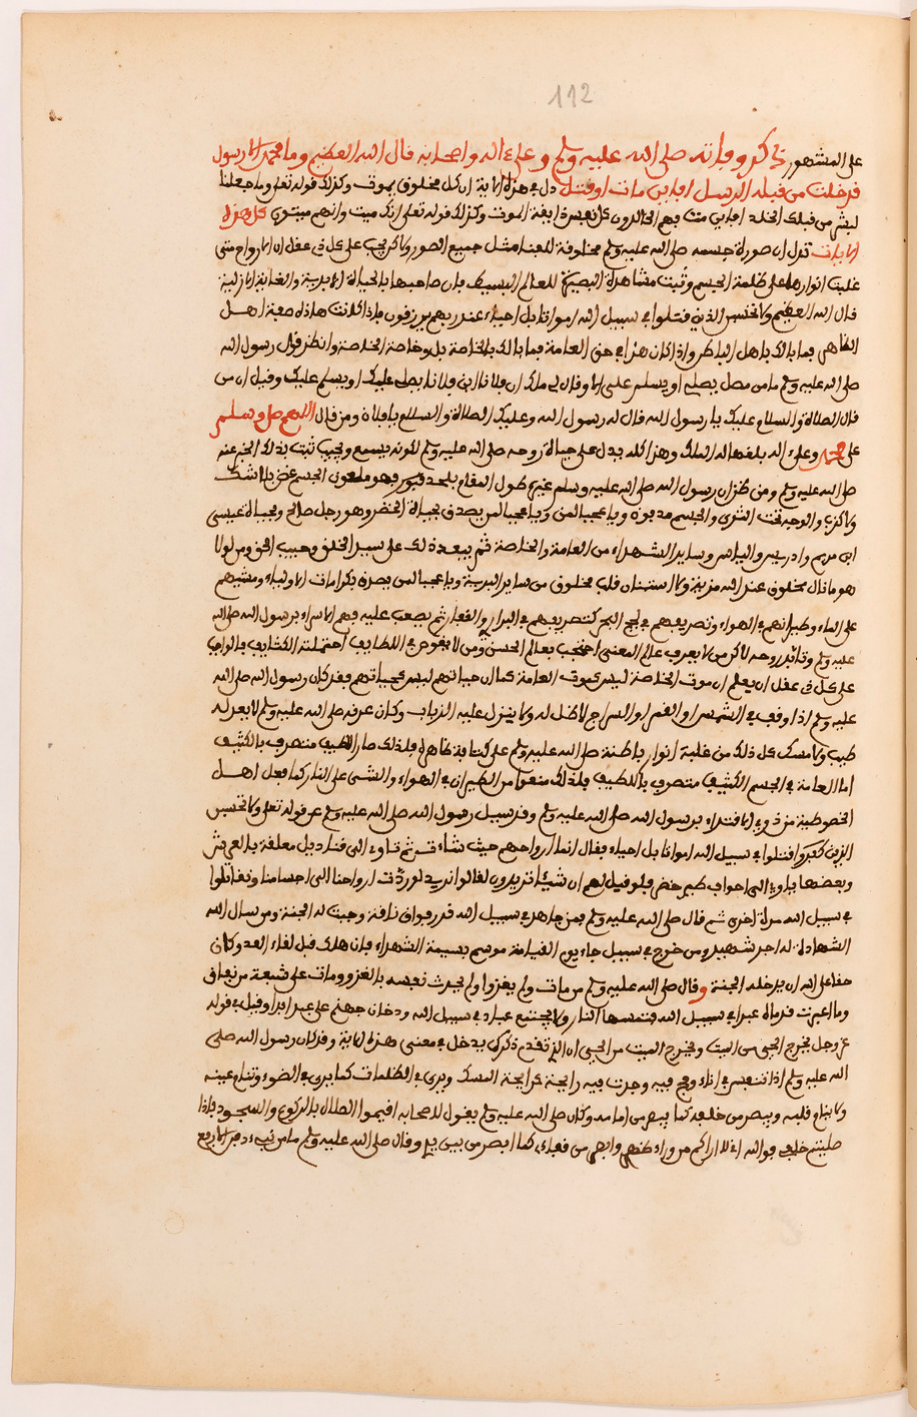 112
على المشهور ذكر وفاته صلى الله عليه وسلم وعلى ءاله واصحابه قال الله العظيم وما محمد الا رسول
قد خلت من قبله الرسل افاين مات او قتل دل في هذه الاية ان كل مخلوق يموت وكذلك قوله تعلى وما جعلنا
لبشر من قبلك الخلد افاين مت فهم الخالدون كل نفس ذايقة الموت وكذلك قوله تعلى انك ميت وانهم ميتون كل هذه
الايات تدل ان صورة جسمه صلى الله عليه وسلم مخلوقة للفنا مثل جميع الصور ولاكن يجب على كل ذي عقل ان الارواح متى
غلبت انوارها على ظلمة الجسم وقيت مشاهدة البصيرة للعالم البسيط فان صاحبها بالحياة الابدية والغاية الازلية
قال الله العظيم ولا تحسبن الذين قتلوا في سبيل الله امواتا بل احياء عند ربهم يرزقون فاذا كانت هاذه صفة اهل
الظاهر فما بالك باهل الباطن واذا كان هذا في حق العامة فما بالك بالخاصة بل وخاصة الخاصة وانظر قول رسول الله
صلى الله عليه وسلم ما من مصل يصلي او يسلم علي الا وقال لي ملك ان فلانا ابن فلان يصلى عليك او يسلم عليك وقيل ان من
قال الصلاة والسلام عليك يا رسول الله قال له رسول الله وعليك الصلاة والسلام يا فلان ومن قال اللهم صل وسلم
على محمد وعلى ءاله بلغها له الملك وهذا كله يدل على حياة روحه صلى الله عليه وسلم لكونه يسمع ويجيب ثبت بذلك الخبر عنه
صلى الله عليه وسلم ومن ظن ان رسول الله صلى الله عليه وسلم غيره طول المقام بلحد فهو ملعون الجسم غض بلا شك
ولا كذب والوجه تحت الثرى والجسم مدفون ويا عجبا لمن ويا عجبا لمن يصدق بحياة الخضر وهو رجل صالح وبحياة عيسى
ابن مريم وادريس والياس وساير الشهداء من العامة والخاصة ثم يبعد ذلك على سيد الخلق وحبيب الحق ومن لولا
هو ما نال مخلوق عند الله مزية ولا استنار قلب مخلوق من ساير البرية ويا عجبا لمن يصدق بكرامات الاولياء ومشيهم
على الماء وطيرانهم في الهواء وتصريفهم في لجج البحر كتصريفهم في البراري والقفار ثم يصعب عليه فهم الاسراء برسول الله صلى الله
عليه وسلم وتاثير روحه لاكن من لا يعرف عالم المعنى احتجب بعالم الحس ومن لا يغوص في اللطايف احتملته الكثايف فالواجب
على كل ذي عقل ان يعلم ان موت الخاصة ليس كموت العامة كما ان حياتهم ليس كحياتهم فقد كان رسول الله صلى الله
عليه وسلم اذا وقف في الشمس او القمر او السراج لا ظل له ولا ينزل عليه الذباب وكان عرفه صلى الله عليه وسلم لا يعدله
طيب ولا مسك كل ذلك من غلبة انوار باطنه صلى الله عليه وسلم على كثافة ظاهره فلذلك صار اللطيف متصرف بالكثيف
اما العامة في الجسم الكثيف متصرف باللطيف فلذلك منعوا من الطيران في الهواء والمشي على النار كما فعل اهل
الخصوصية من ذوي الاقتداء برسول الله صلى الله عليه وسلم وقد سيل رسول الله صلى الله عليه وسلم عن قوله تعلى ولا تحسبن
الذين قتلوا في سبيل الله امواتا بل احياء فقال انما ارواحهم حيث شاءت ثم تاوي الى قناديل معلقة بالعرش
وبعضها ياوي الى اجواف طير خضر فلو قيل لهم ان شيئا تريدون لقالوا نريد لو ردت ارواحنا الى اجسامنا ونقاتلوا
في سبيل الله مرة اخرى ثم قال صلى الله عليه وسلم فمن جاهد في سبيل الله قدر فواق ناقة وجبت له الجنة ومن سال الله
الشهادة له اجر شهيد ومن خرج في سبيل جاء يوم القيامة موسم بسيمة الشهداء فان هلك قبل لقاء العدو كان
حقا على الله ان يدخله الجنة وقال صلى الله عليه وسلم من مات ولم يغزوا ولم يحدث نفسه بالغزو ومات على شعبة من نفاق
وما اغبرت قدماه عبد في سبيل الله فتمسها النار ولا يجتمع غبار في سبيل الله ودخان جهنم على عبد ابدا وقيل في قوله
عز وجل يخرج الحي من الميت ويخرج الميت من الحي ان الذي تقدم ذكره يدخل في معنى هذه الاية وقد كان رسول الله صلى
الله عليه وسلم اذا تنفس في اناء ومج فيه وجدت فيه رايحة كرايحة المسك ويرى في الظلمات كما يرى في الضوء وتنام عينه
ولا ينام قلبه ويبصر من خلفه كما يبصر من امامه وكان صلى الله عليه وسلم يقول لاصحابه اقيموا الصلاة بالركوع والسجود فاذا
صليتم خلفي فوالله اني لا اراكم من وراء ظهري وابصر من قفاءي كما ابصر من بين يدي وقال صلى الله عليه وسلم ما من نبيء دفن الا رفع